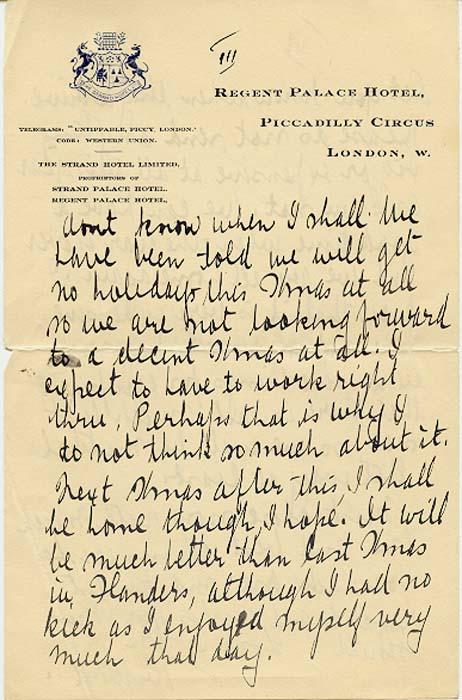 III
REGENT PALACE HOTEL,
PICCADILLY CIRCUS
LONDON, W.
TELEGRAMS: "UNTIPPABLE, PICCY, LONDON."
CODE: WESTERN UNION.
THE STRAND HOTEL LIMITED,
PROPRIETORS OF
STRAND PALACE HOTEL.
REGENT PALACE HOTEL,
dont know when I shall. We
have been told we will get
no holidays this Xmas at all
so we are not looking forward
to a decent Xmas at all. I
expect to have to work right
thru, Perhaps that is why I
do not think so much about it.
Next Xmas after this, I shall
be home though, I hope. It will
be much better than last Xmas
in, Flanders, although I had no
kick as I enjoyed myself very
much that day.